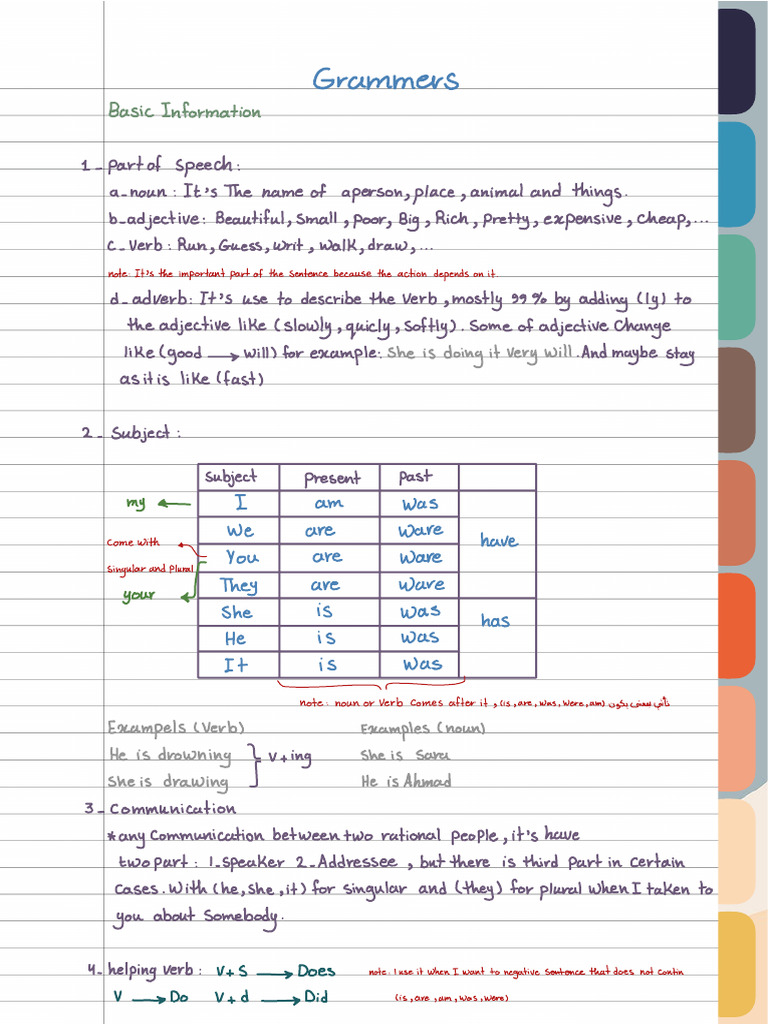 Grammers
Basic Information
1- Part of Speech:
a-noun: It's The name of aperson, place, animal and things.
b-adjective: Beautiful, Small, Poor, Big, Rich, Pretty, expensive, cheap,...
c-Verb: Run, Guess, writ, walk, draw,...
note: It's the important part of the Sentence because the action depends on it.
d-adverb: It's use to describe the Verb, mostly 99% by adding (ly) to
the adjective like (slowly, quicly, Softly). Some of adjective Change
like (good → will) for example: She is doing it very will. And maybe stay
as it is like (fast)
2- Subject:
Subject Present Past
my ← I am was
We are Ware
have
Come with You are Ware
Singular and Plural
your They are Ware
She is was
has
He is was
It is was
note: noun or Verb Comes after it, (is, are, was, were, am)
Exampels (Verb) Examples (noun)
He is drowning V+ing She is Sara
She is drawing He is Ahmad
3- Communication
*any Communication between two rational people, it's have
two part: 1-Speaker 2-Addressee, but there is third Part in Certain
Cases. With (he, she, it) for singular and (they) for plural when I taken to
you about Somebody.
4- helping verb: V+S → Does note: I use it when I want to negative Sentence that does not contin
V → Do V+d → Did (is, are, am, was, were)